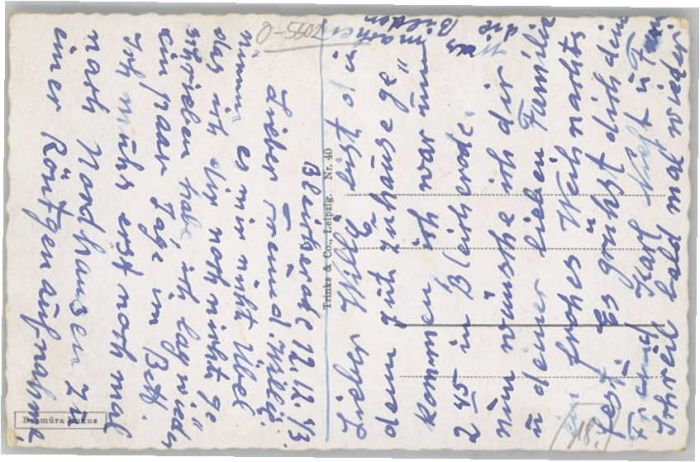 Bleicherode 12.12.43.
Lieber Freund Willi.
nimm es mir nicht übel
das ich dir noch nicht ge
schrieben habe ich lag wieder
ein paar Tage im Bett.
Ich muhs erst noch mal
nach Nordhausen zu
einer Röntgenaufnahme
Lieber Willi
dem gut zuhause ge
kommen ich war um
2 45 in Bleicherode.
Nun wünsche ich dir
u deiner lieben Familie
frohes Weihnachts
fest. Es grüsst dich dein
Freund Karl u Frau
Schreib bald mal wieder.
Was machen die Bilder
Trinks & Co., Leipzig. Nr. 40